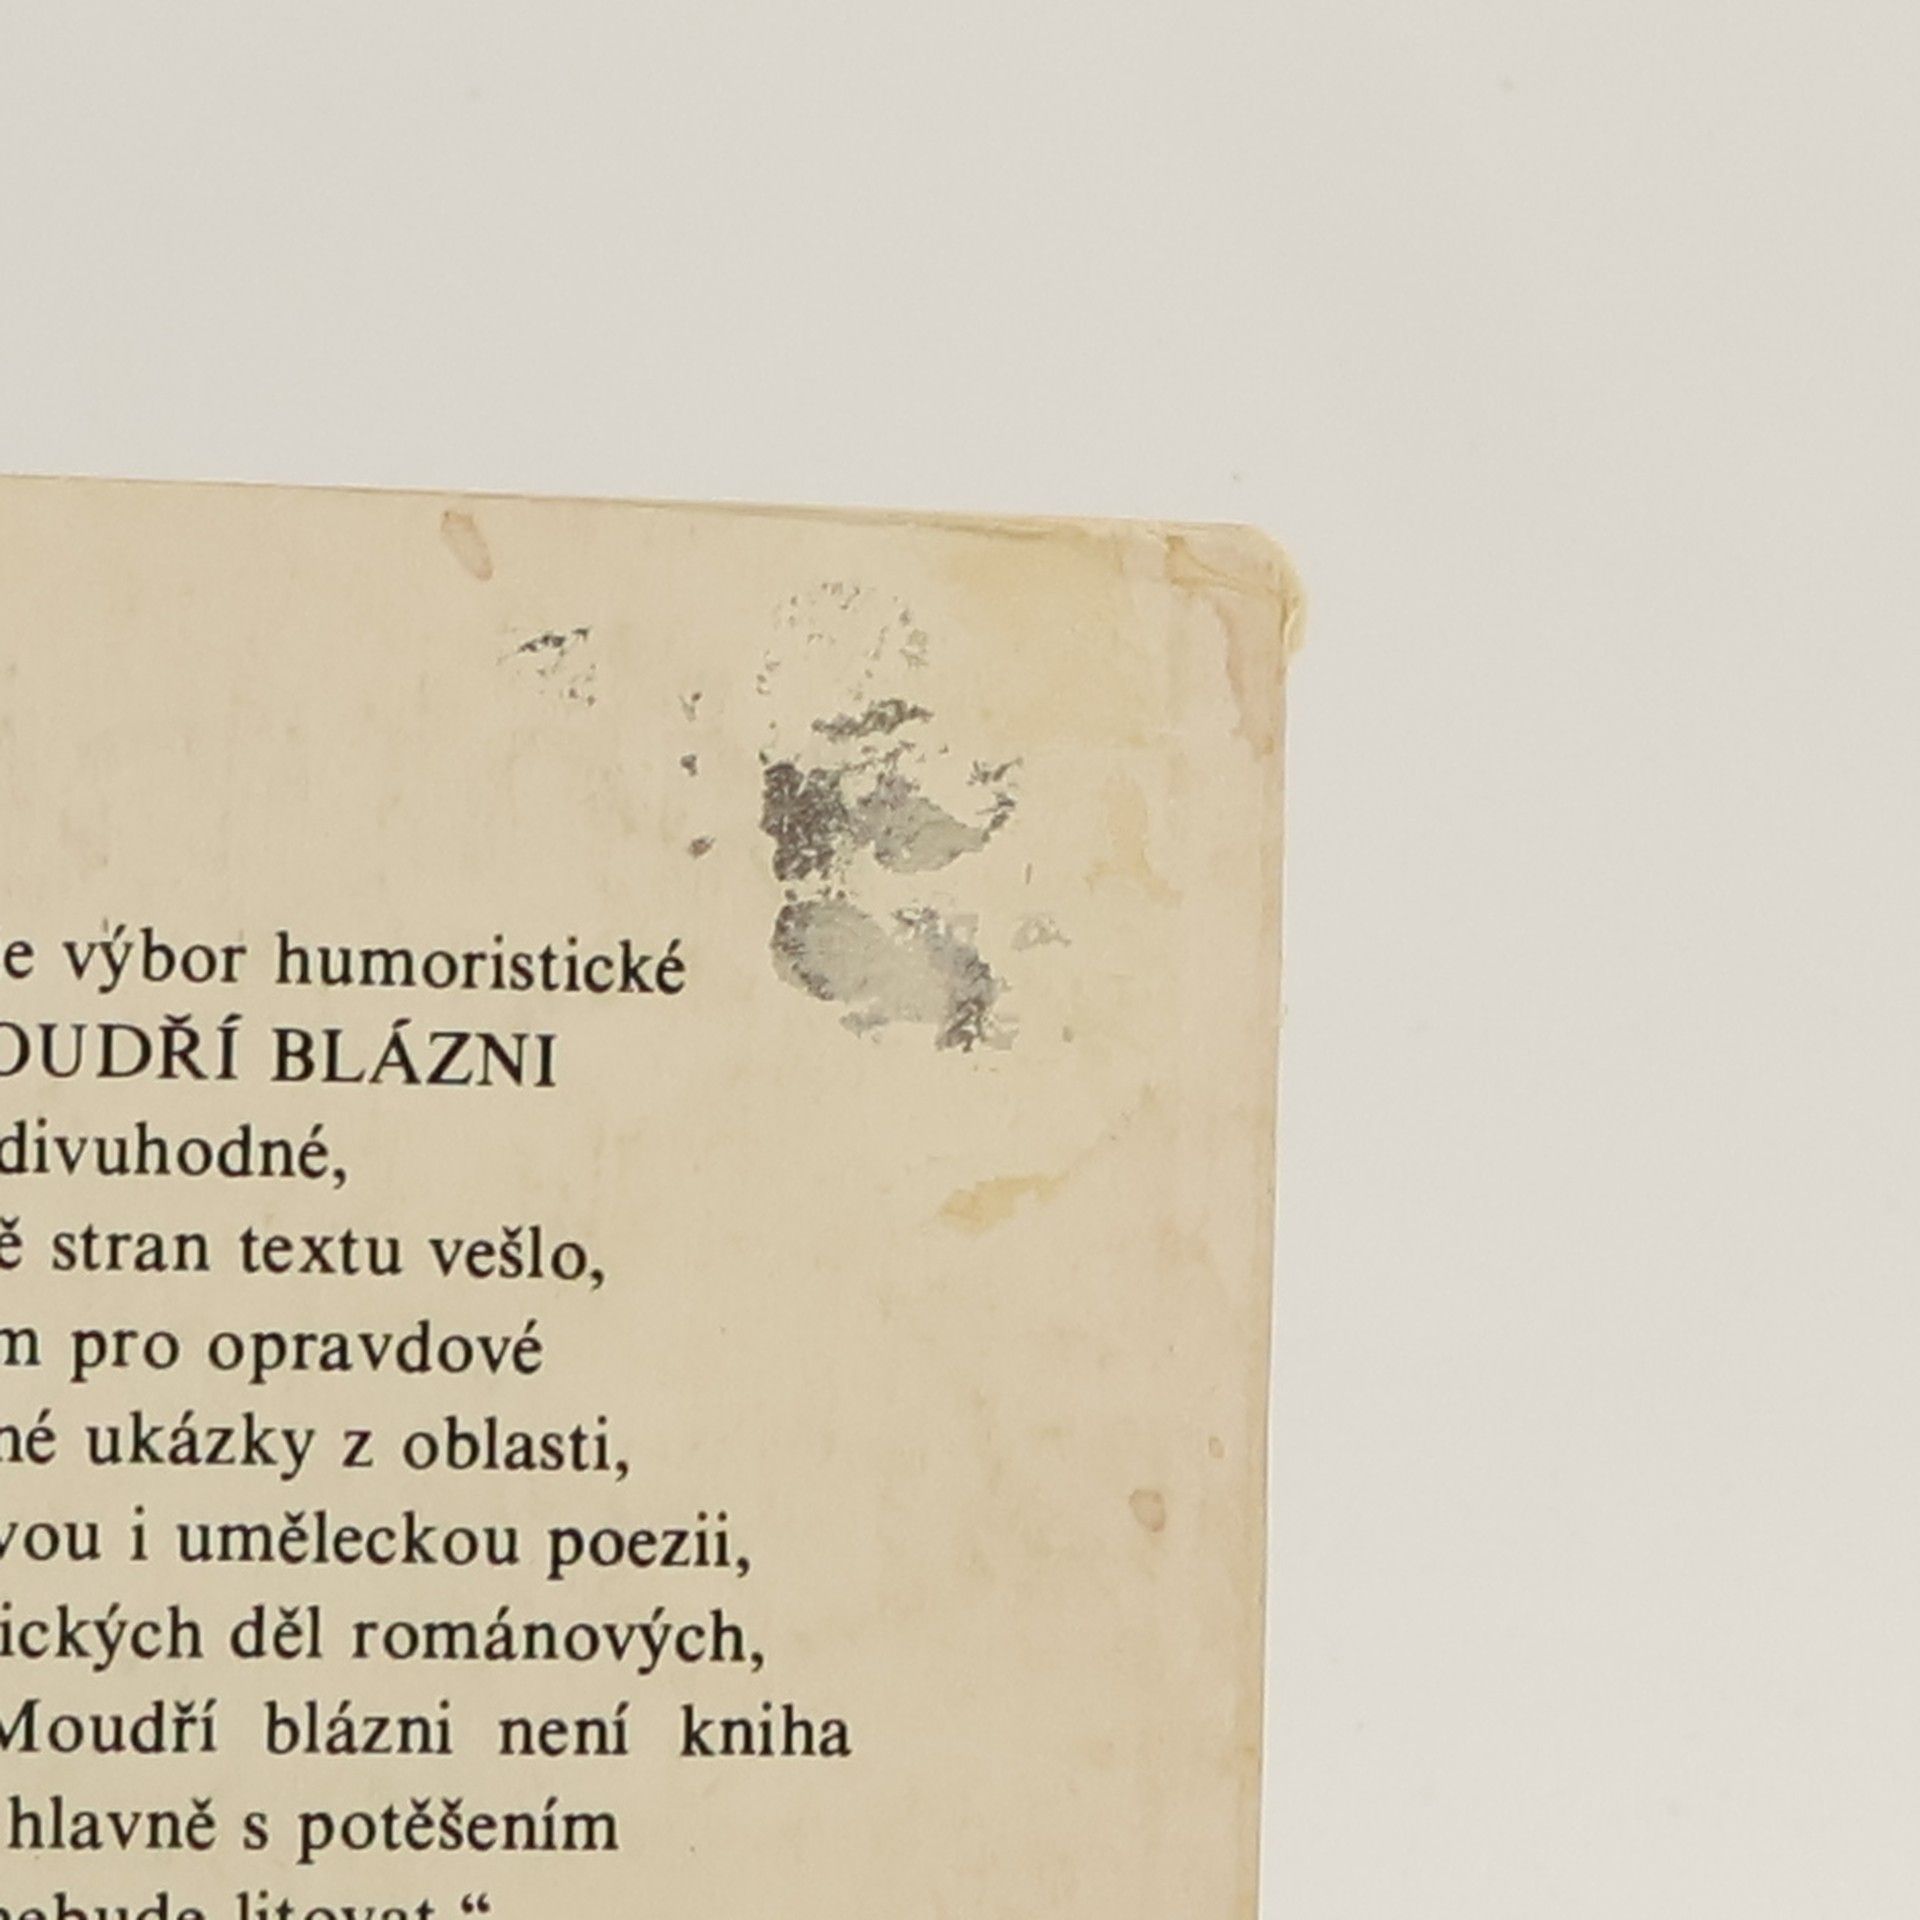 výbor humoristické
OUDŘÍ BLÁZNI
divuhodné,
stran textu vešlo,
pro opravdové
ukázky z oblasti,
vou i uměleckou poezii,
ických děl románových,
Moudří blázni není kniha
hlavně s potěšením
nebude litovat.“